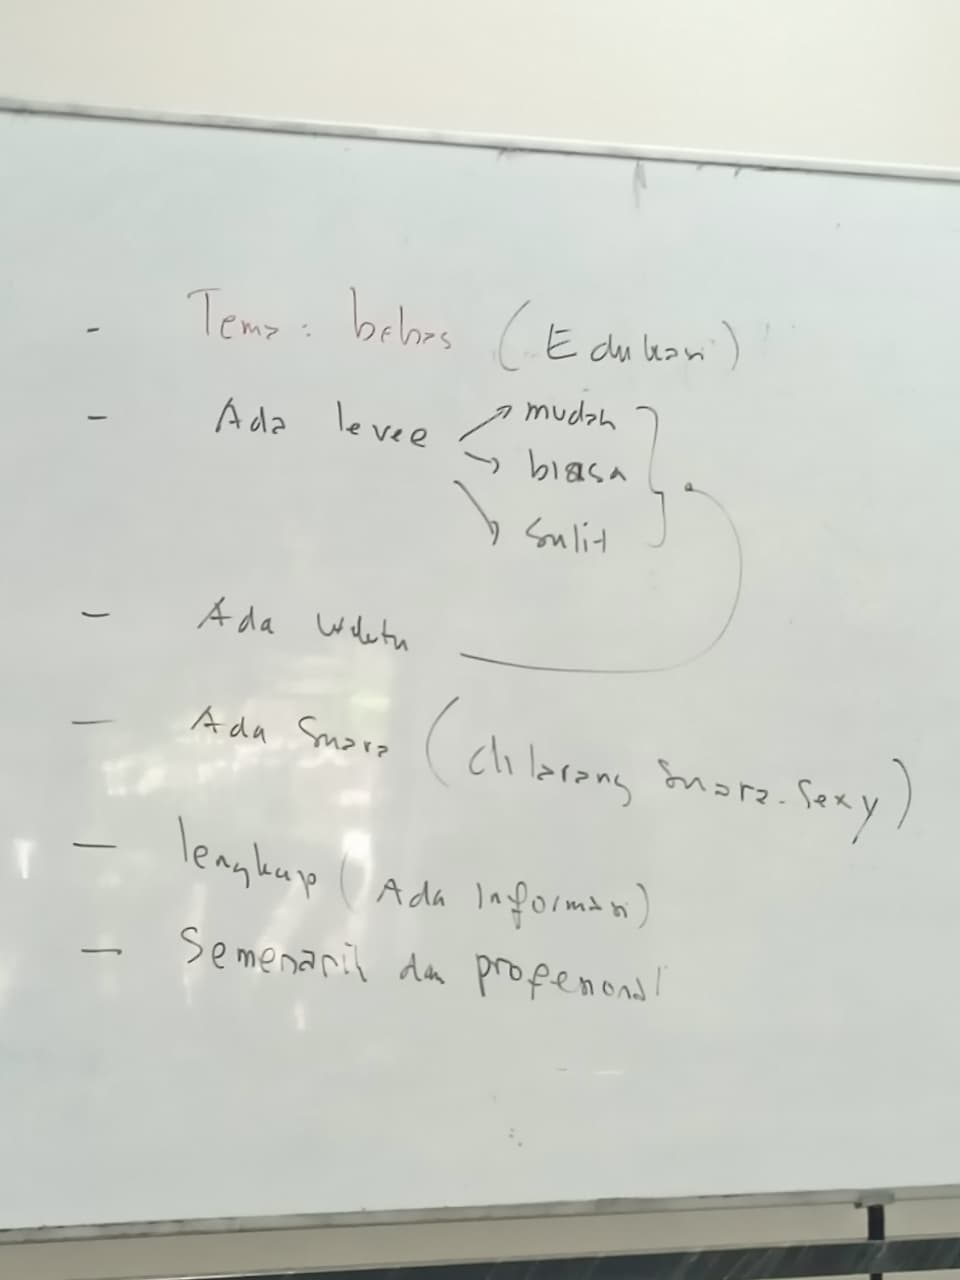 - Tema : bebas (Edukasi)
- Ada level → mudah
→ biasa
→ Sulit
- Ada Waktu
- Ada Suara (dilarang Suara Sexy)
- lengkap (Ada Informasi)
- Semenarik dan profesional